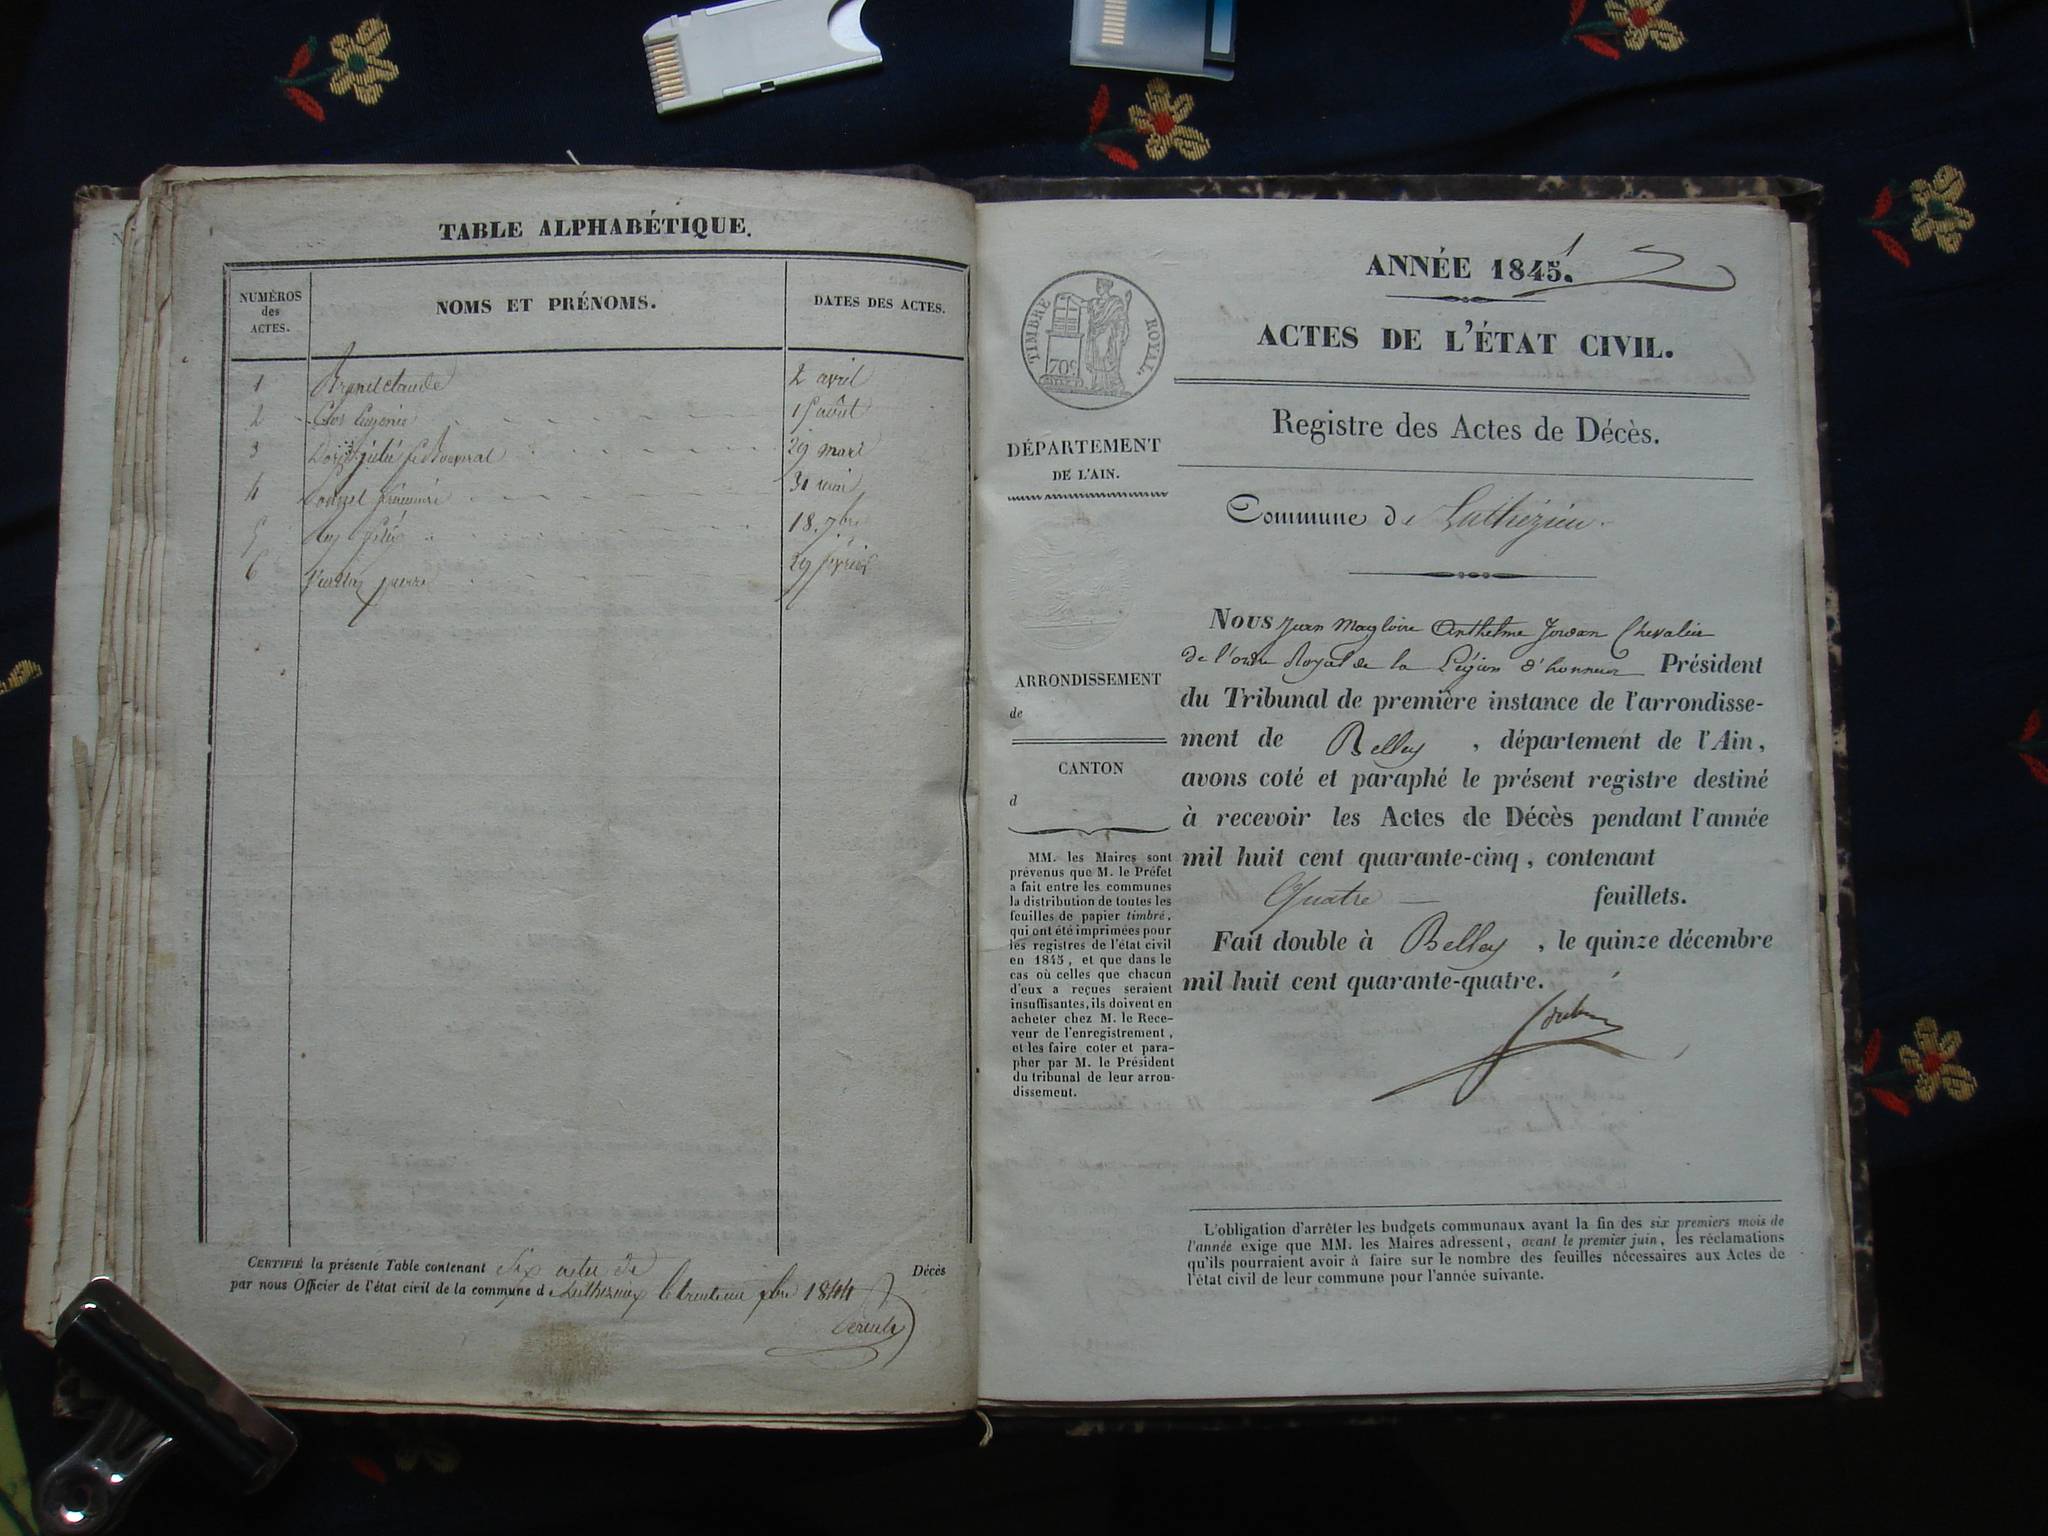 TABLE ALPHABÉTIQUE.
NUMÉROS
des
ACTES.
NOMS ET PRÉNOMS.
DATES DES ACTES.
1 claude 2 avril
2 Clos Eugénie 15 août
3 29 mars
4 31
5 18. 7bre
6 pierre 29 février
CERTIFIÉ la présente Table contenant Six actes de Décès
par nous Officier de l'état civil de la commune de Luthezieux le trente un 1844
ANNÉE 1845.
1
ACTES DE L'ÉTAT CIVIL.
TIMBRE ROYAL.
70c
Registre des Actes de Décès.
DÉPARTEMENT
DE L'AIN.
Commune de Luthézieu.
ARRONDISSEMENT
de
CANTON
d
MM. les Maires sont
prévenus que M. le Préfet
a fait entre les communes
la distribution de toutes les
feuilles de papier timbré,
qui ont été imprimées pour
les registres de l'état civil
en 1845, et que dans le
cas où celles que chacun
d'eux a reçues seraient
insuffisantes, ils doivent en
acheter chez M. le Rece-
veur de l'enregistrement,
et les faire coter et para-
pher par M. le Président
du tribunal de leur arron-
dissement.
NOUS Jean Magloire Anthelme Jordan Chevalier
de l'ordre Royal de la Légion d'honneur Président
du Tribunal de première instance de l'arrondisse-
ment de Belley , département de l'Ain,
avons coté et paraphé le présent registre destiné
à recevoir les Actes de Décès pendant l'année
mil huit cent quarante-cinq, contenant
Quatre feuillets.
Fait double à Belley , le quinze décembre
mil huit cent quarante-quatre.
L'obligation d'arrêter les budgets communaux avant la fin des six premiers mois de
l'année exige que MM. les Maires adressent, avant le premier juin, les réclamations
qu'ils pourraient avoir à faire sur le nombre des feuilles nécessaires aux Actes de
l'état civil de leur commune pour l'année suivante.